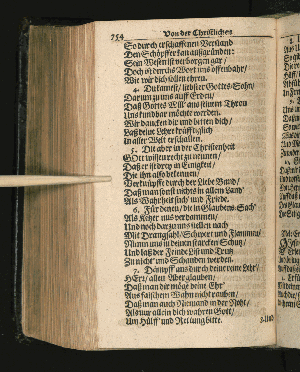 754 Von der Christlichen
So durch erschaffenen Verstand
Den Schöpffer kan außgründen:
Sein Wesen ist verborgen gar/
Doch ist durchs Wort uns offenbahr/
Wie wir dich sollen ehren.
4. Du kamest/ liebster Gottes-Sohn/
Darum zu uns auff Erden/
Daß Gottes Will' aus seinem Thron
Uns kundbar möchte werden.
Wir dancken dir und bitten dich/
Laß deine Lehre kräfftiglich
In aller Welt erschallen.
5. Die aber in der Christenheit
Gott wissen recht zu nennen/
Daß er ist drey in Einigkeit/
Die ihn also bekennen/
Verknüpffe durch der Liebe Band/
Daß man sonst nichts in allem Land'
Als Wahrheit such' und Friede.
6. Für denen/ die in Glaubens-Sach'
Als Ketzer uns verdammen/
Und noch darzu uns stellen nach
Mit Drangsahl/ Schwert und Flammen/
Nimm uns in deinen starcken Schutz/
Und laß der Feinde List und Trutz
Zu nicht' und Schanden werden.
7. Dämpff' uns durch deine reine Lehr'/
HErr/ allen Aberglauben/
Daß man dir möge deine Ehr'
Aus falschem Wahn nicht rauben/
Daß man auch Niemand in der Noht/
Als nur allein dich wahren Gott/
Um Hülff' und Rettung bitte.